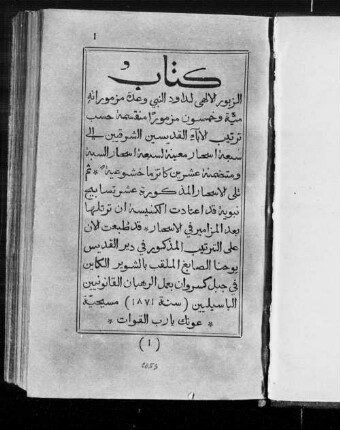 1
كتاب
الزبور الالهي لداود النبي وعدة مزموراته
مئة وخمسون مزمورا منقسمة حسب
ترتيب الاباء القديسين الشرقيين الى
سبعة اسحار معينة لسبعة اسحار السبة
ومتضمنة عشرين كاتزما خشوعية * ثم
تلى الاسحار المذكورة عشر تسابيح
نبوية قد اعتادت الكنيسة ان ترتلها
بعد المزامير في الاسحار * قد طبعت الان
على الترتيب المذكور في دير القديس
يوحنا الصابغ الملقب بالشوير الكاين
في جبل كسروان بعمل الرهبان القانونيين
الباسيليين (سنة ١٨٧١) مسيحية
* عونك يا رب القوات *
(١)